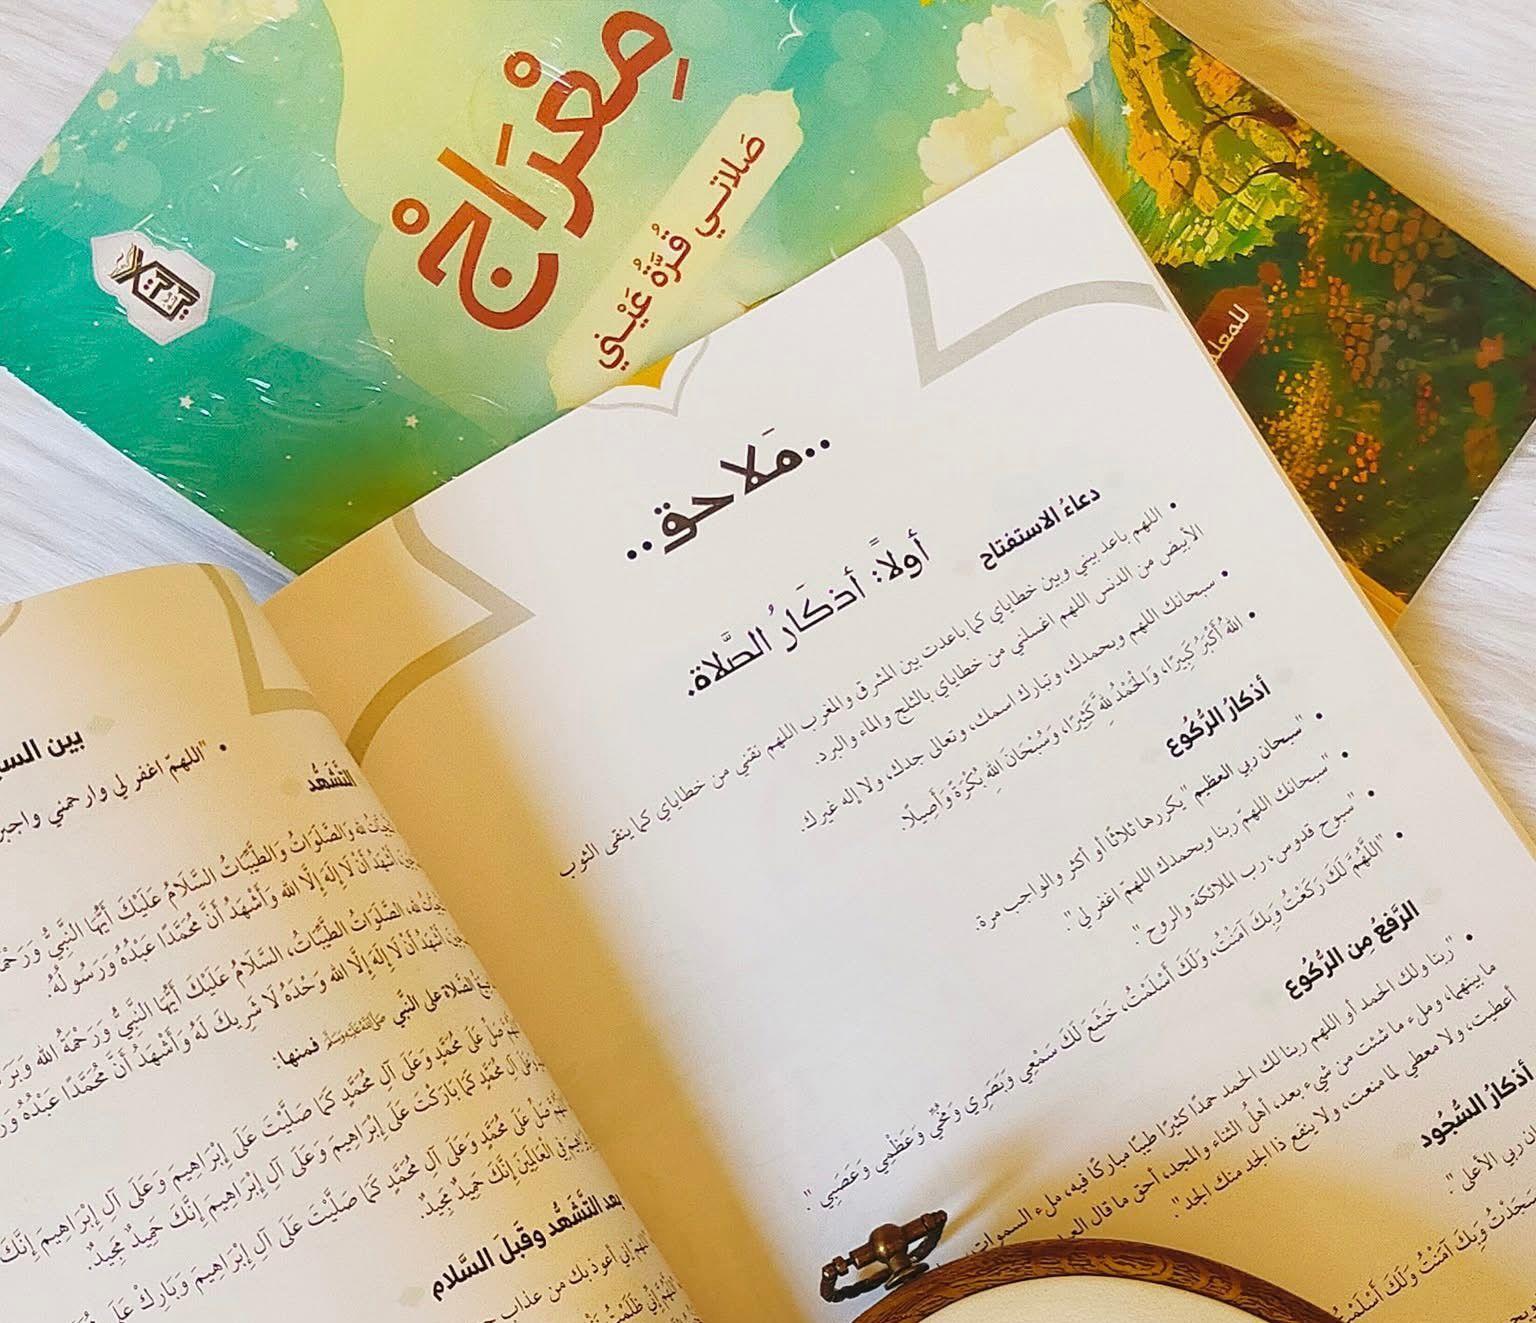 مِعْرَاجْ
صَلاتي قُرَّةُ عَيْني
..مَلاحق..
أولاً: أذكَارُ الصَّلاة.
دعاءُ الاستفتاح
• اللهم باعد بيني وبين خطاياي كما باعدت بين المشرق والمغرب اللهم نقني من خطاياي كما ينقى الثوب
الأبيض من الدنس اللهم اغسلني من خطاياي بالثلج والماء والبرد.
• سبحانك اللهم وبحمدك، وتبارك اسمك، وتعالى جدك، ولا إله غيرك.
• اللهُ أَكْبَرُ كَبِيرًا، وَالْحَمْدُ لِلَّهِ كَثِيرًا، وَسُبْحَانَ اللهِ بُكْرَةً وَأَصِيلًا.
أذكارُ الرُّكُوع
• "سبحان ربي العظيم" يكررها ثلاثًا أو أكثر والواجب مرة.
• "سبحانك اللهمّ ربنا وبحمدك اللهمّ اغفر لي".
• "سبوح قدوس، رب الملائكة والروح".
• "اللَّهُمَّ لَكَ رَكَعْتُ وَبِكَ آمَنْتُ، وَلَكَ أَسْلَمْتُ، خَشَعَ لَكَ سَمْعِي وَبَصَرِي وَمُخِّي وَعَظْمِي وَعَصَبِي".
الرَّفعُ مِن الرُّكُوع
• "ربنا ولك الحمد أو اللهم ربنا لك الحمد حمدًا كثيرًا طيبًا مباركًا فيه، ملء السموات
ما بينهما، وملء ما شئت من شيء بعد، أهلُ الثناء والمجد، أحق ما قال
أعطيت، ولا معطي لما منعت، ولا ينفع ذا الجد منك الجد".
أذكارُ السُّجُود
ربي الأعلى".
سَجَدْتُ وَبِكَ آمَنْتُ وَلَكَ أَسْلَمْتُ
بين
• "اللهمّ اغفر لي وارحمني
التَّشَهُّد
وَالصَّلَوَاتُ وَالطَّيِّبَاتُ السَّلَامُ عَلَيْكَ أَيُّهَا النَّبِيُّ
أَشْهَدُ أَنْ لَا إِلَهَ إِلَّا الله وَأَشْهَدُ أَنَّ مُحَمَّدًا عَبْدُهُ وَرَسُولُهُ.
الصَّلَوَاتُ الطَّيِّبَاتُ، السَّلَامُ عَلَيْكَ أَيُّهَا النَّبِيُّ وَرَحْمَةُ الله
أَشْهَدُ أَنْ لَا إِلَهَ إِلَّا الله وَحْدَهُ لَا شَرِيكَ لَهُ وَأَشْهَدُ أَنَّ مُحَمَّدًا عَبْدُهُ
الصَّلاة على النَّبي ﷺ فمنها:
صَلِّ عَلَى مُحَمَّدٍ وَعَلَى آلِ مُحَمَّدٍ كَمَا صَلَّيْتَ عَلَى إِبْرَاهِيمَ وَعَلَى آلِ إِبْرَاهِيمَ إِنَّكَ
عَلَى آلِ مُحَمَّدٍ كَمَا بَارَكْتَ عَلَى إِبْرَاهِيمَ وَعَلَى آلِ إِبْرَاهِيمَ إِنَّكَ حَمِيدٌ مَجِيدٌ.
صَلِّ عَلَى مُحَمَّدٍ وَعَلَى آلِ مُحَمَّدٍ كَمَا صَلَّيْتَ عَلَى آلِ إِبْرَاهِيمَ وَبَارِكْ عَلَى
فِي الْعَالَمِينَ إِنَّكَ حَمِيدٌ مَجِيدٌ.
بعد التَّشَهُّد وقبلَ السَّلام
إني أعوذ بك من عذاب
إِنِّي ظَلَمْتُ